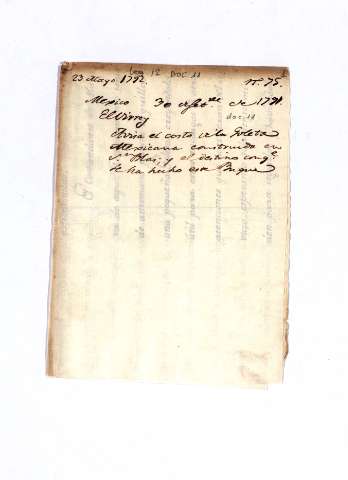 Leg 12 DOC 11
23 Mayo 1792. nº 75.
Mexico 30 de de 1791.
El Virrey doc 11
Avisa el costo de la Goleta
Mexicana construida en
Sn Blas; y el destino con qe
se ha hecho este Buque